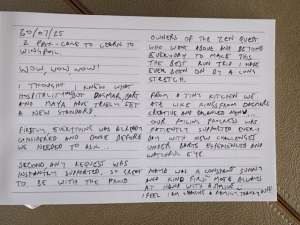 30/07/25
2 PAX - CAME TO LEARN TO
WINGFOIL
WOW, WOW, WOW!
I THOUGHT I KNEW WHAT
HOSPITALITY BUT DAGMAR,
AND MAYA HAVE TRULY SET
A NEW STANDARD
FIRSTLY EVERYTHING WAS ALREADY
CONSIDERED AND DONE BEFORE
WE NEEDED TO ASK.
SECOND ANY REQUEST WAS
INSTANTLY SUPPORTED, SO GREAT
TO BE WITH THE PROUD
OWNERS OF THE ZEN QUEST
WHO WENT ABOVE AND BEYOND
EVERYDAY TO MAKE THIS
THE BEST RUN TRIP I HAVE
EVER BEEN ON BY A LONG
STRETCH.
FROM A TINY KITCHEN WE
ATE LIKE KINGS FROM DAGMARS
CREATIVE AND BALANCED MENU,
OUR FOILING PROGRESS WAS
PATIENTLY SUPPORTED EVERY
DAY WITH NEW CHALLENGES
UNDER BARTS EXPERIENCED AND
WATCHFUL EYE
MAYA WAS A CONSTANT SUNNY
AND KIND FIRST MATE ALWAYS
AT HAND WITH A SMILE
I FEEL I AM LEAVING A FAMILY